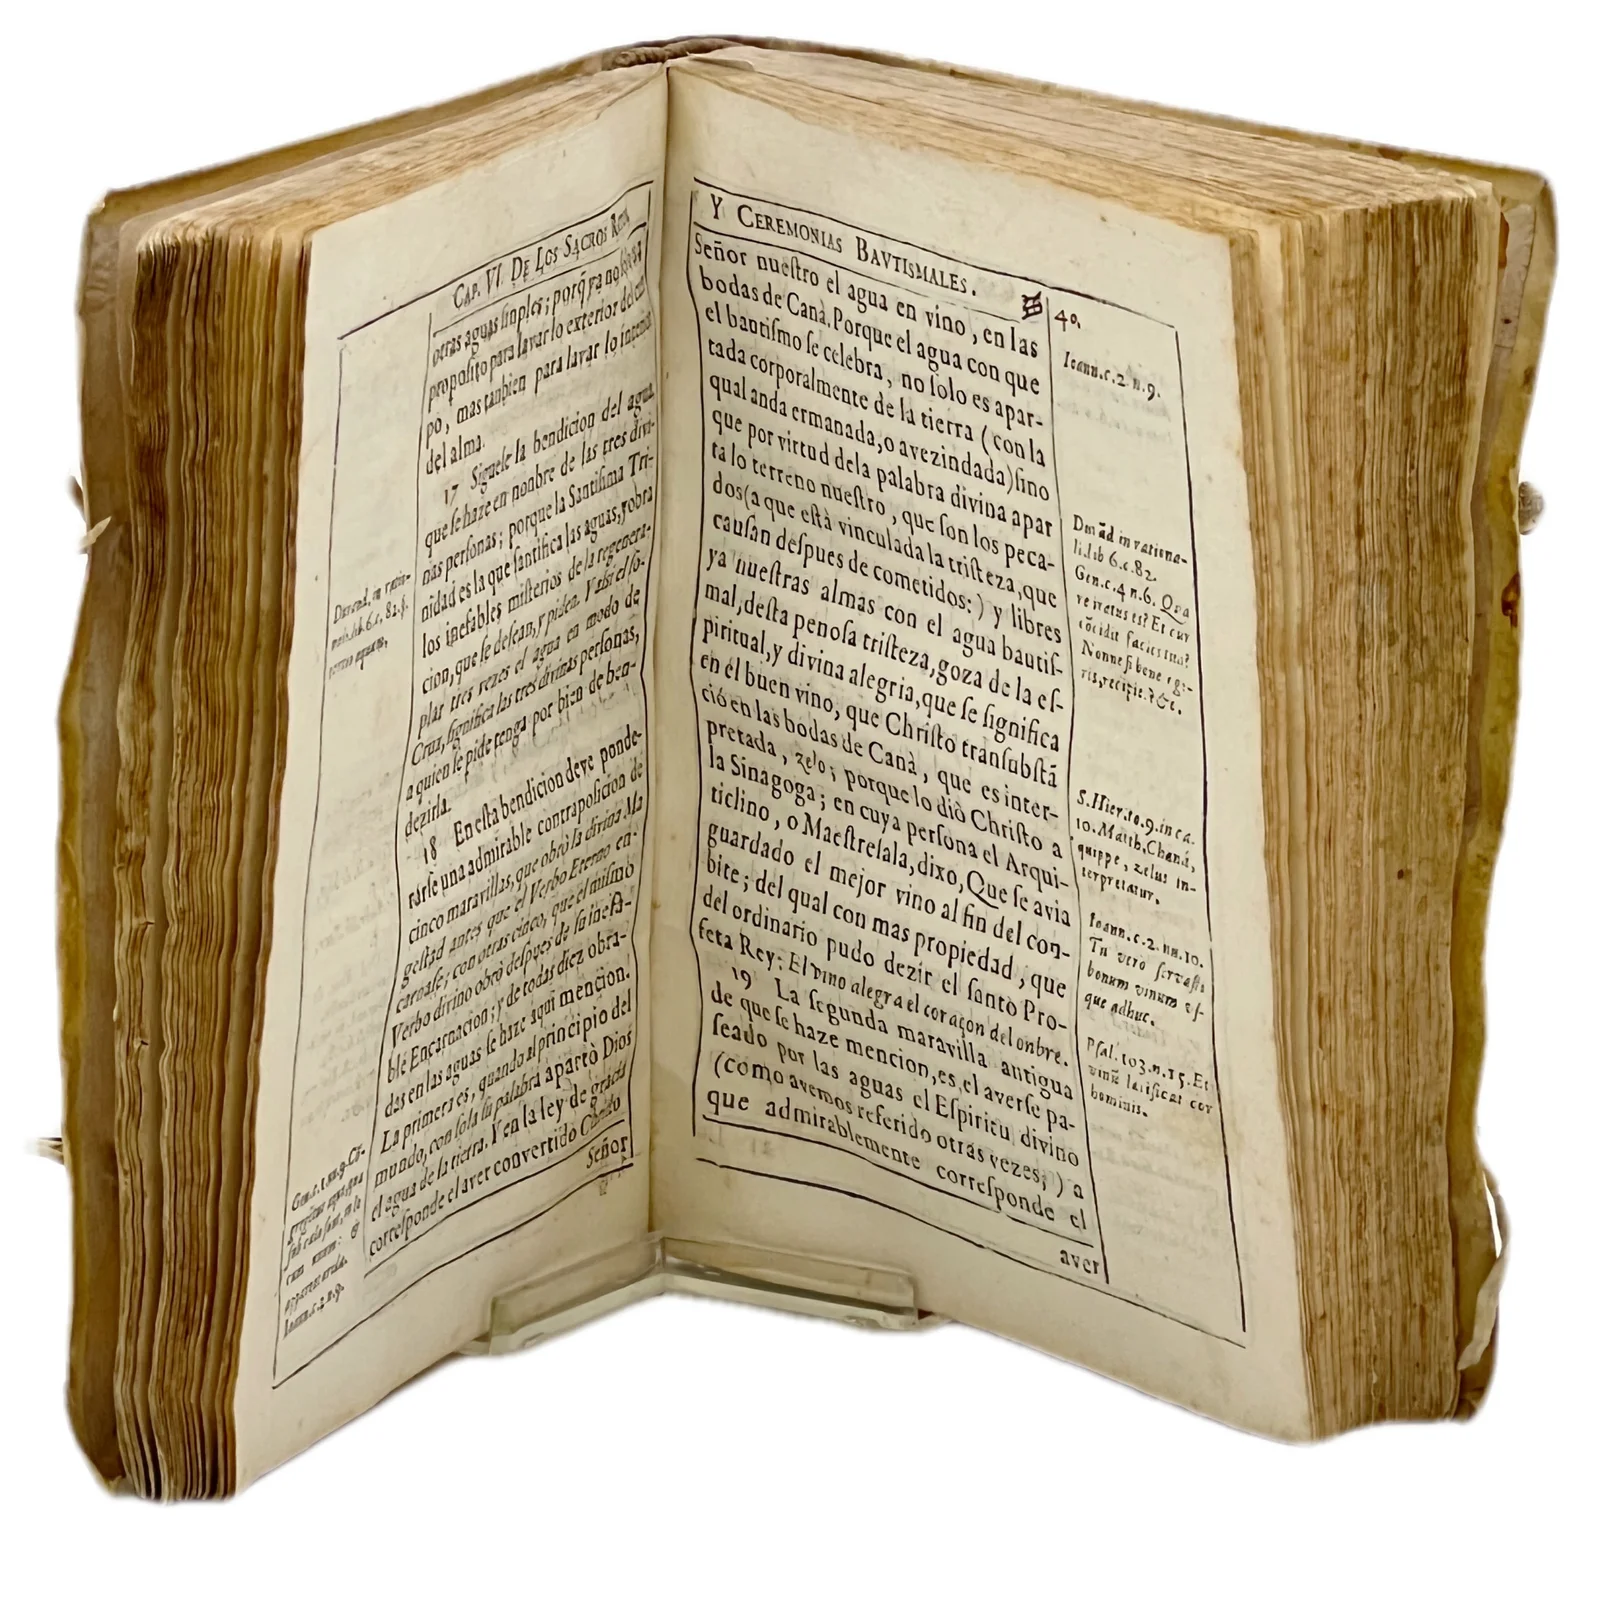 CAP. VI. DE LOS SACROS
otras aguas sinples; porq̃ ya no
proposito para lavar lo exterior del
po, mas tanbien para lavar lo
del alma.
17 Siguese la bendicion del agua,
que se haze en nonbre de las tres divi-
nas personas; porque la Santisima Tri-
nidad es la que santifica las aguas, y obra
los inefables misterios de la regenera-
cion, que se desean, y piden. Y asi el so-
plar tres vezes el agua en modo de
Cruz, significa las tres divinas personas,
a quien se pide tenga por bien de ben-
dezirla.
18 En esta bendicion deve ponde-
rarse una admirable contraposicion de
cinco maravillas, que obrò la divina Ma
gestad antes que el Verbo Eterno en-
carnase; con otras cinco, que el mismo
Verbo divino obrò despues de su inefa-
ble Encarnacion; y de todas diez obra-
das en las aguas se haze aqui mencion.
La primera es, quando al principio del
mundo, con sola su palabra apartò Dios
el agua de la tierra. Y en la ley de gracia
corresponde el aver convertido
Señor
Durand. in ratio-
nali. lib. 6. c. 82. §.
Gen. c. 1. n. 9. Cō-
Ioann. c. 2. n. 9.
Y CEREMONIAS BAVTISMALES.
40.
Señor nuestro el agua en vino, en las
bodas de Canà. Porque el agua con que
el bautismo se celebra, no solo es apar-
tada corporalmente de la tierra (con la
qual anda ermanada, o avezindada) sino
que por virtud dela palabra divina apar
ta lo terreno nuestro, que son los peca-
dos (a que està vinculada la tristeza, que
causan despues de cometidos:) y libres
ya nuestras almas con el agua bautis-
mal, desta penosa tristeza, goza de la es-
piritual, y divina alegria, que se significa
en el buen vino, que Christo transubstã
ciò en las bodas de Canà, que es inter-
pretada, zelo; porque lo diò Christo a
la Sinagoga; en cuya persona el Arqui-
ticlino, o Maestresala, dixo, Que se avia
guardado el mejor vino al fin del con-
bite; del qual con mas propiedad, que
del ordinario pudo dezir el santo Pro-
feta Rey: El vino alegra el coraçon del onbre.
19 La segunda maravilla antigua
de que se haze mencion, es, el averse pa-
seado por las aguas el Espiritu divino
(como avemos referido otras vezes;) a
que admirablemente corresponde el
aver
Ioann. c. 2. n. 9.
Durãd in rationa-
li. lib 6. c. 82.
Gen. c. 4 n. 6. Qua
re iratus es? Et cur
cõcidit facies tua?
Nonne si bene ege-
ris, recipie. ? &c.
S. Hier. to. 9. in ca.
10. Matth. Chanà,
quippe, zelus in-
terpretatur.
Ioann. c. 2. nu. 10.
Tu vero servasti
bonum vinum us-
que adhuc.
Psal. 103. n. 15. Et
vinũ lætificat cor
hominis.